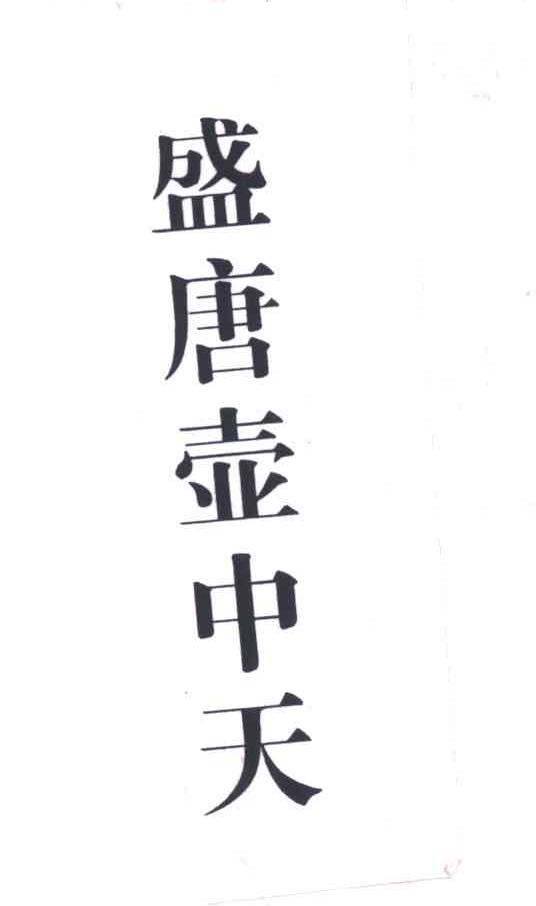 盛唐壶中天